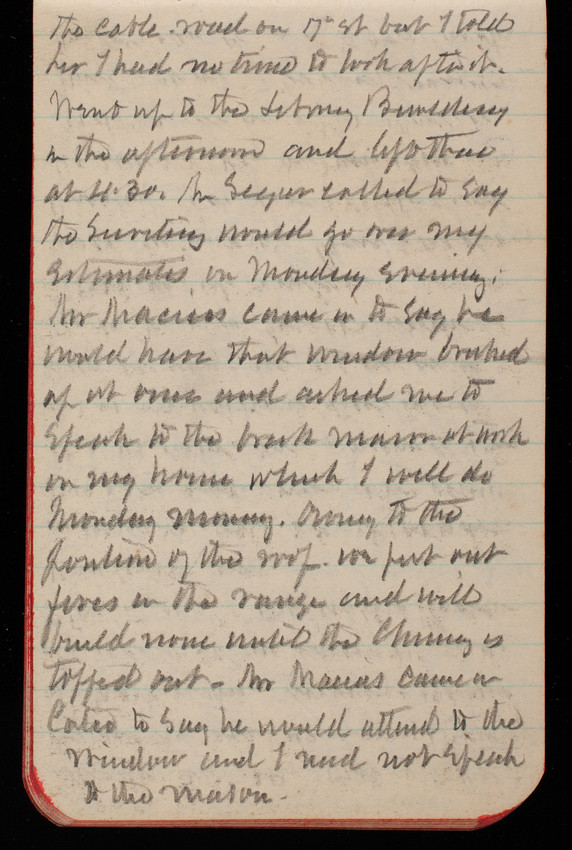 the cable road on 17" st but I told
her I had no time to look after it.
Went up to the Library Building
in the afternoon and left there
at 4.30. Mr called to say
the Secretary would go over my
Estimates on Monday evening.
Mr Macies came in to say he
would have that window bricked
up at once and asked me to
speak to the brick mason at work
on my house which I will do
Monday morning. Owing to the
position of the roof we put out
fires in the range and will
build none until the Chimney is
topped out - Mr Macies came in
later to say he would attend to the
window and I need not speak
to the mason.